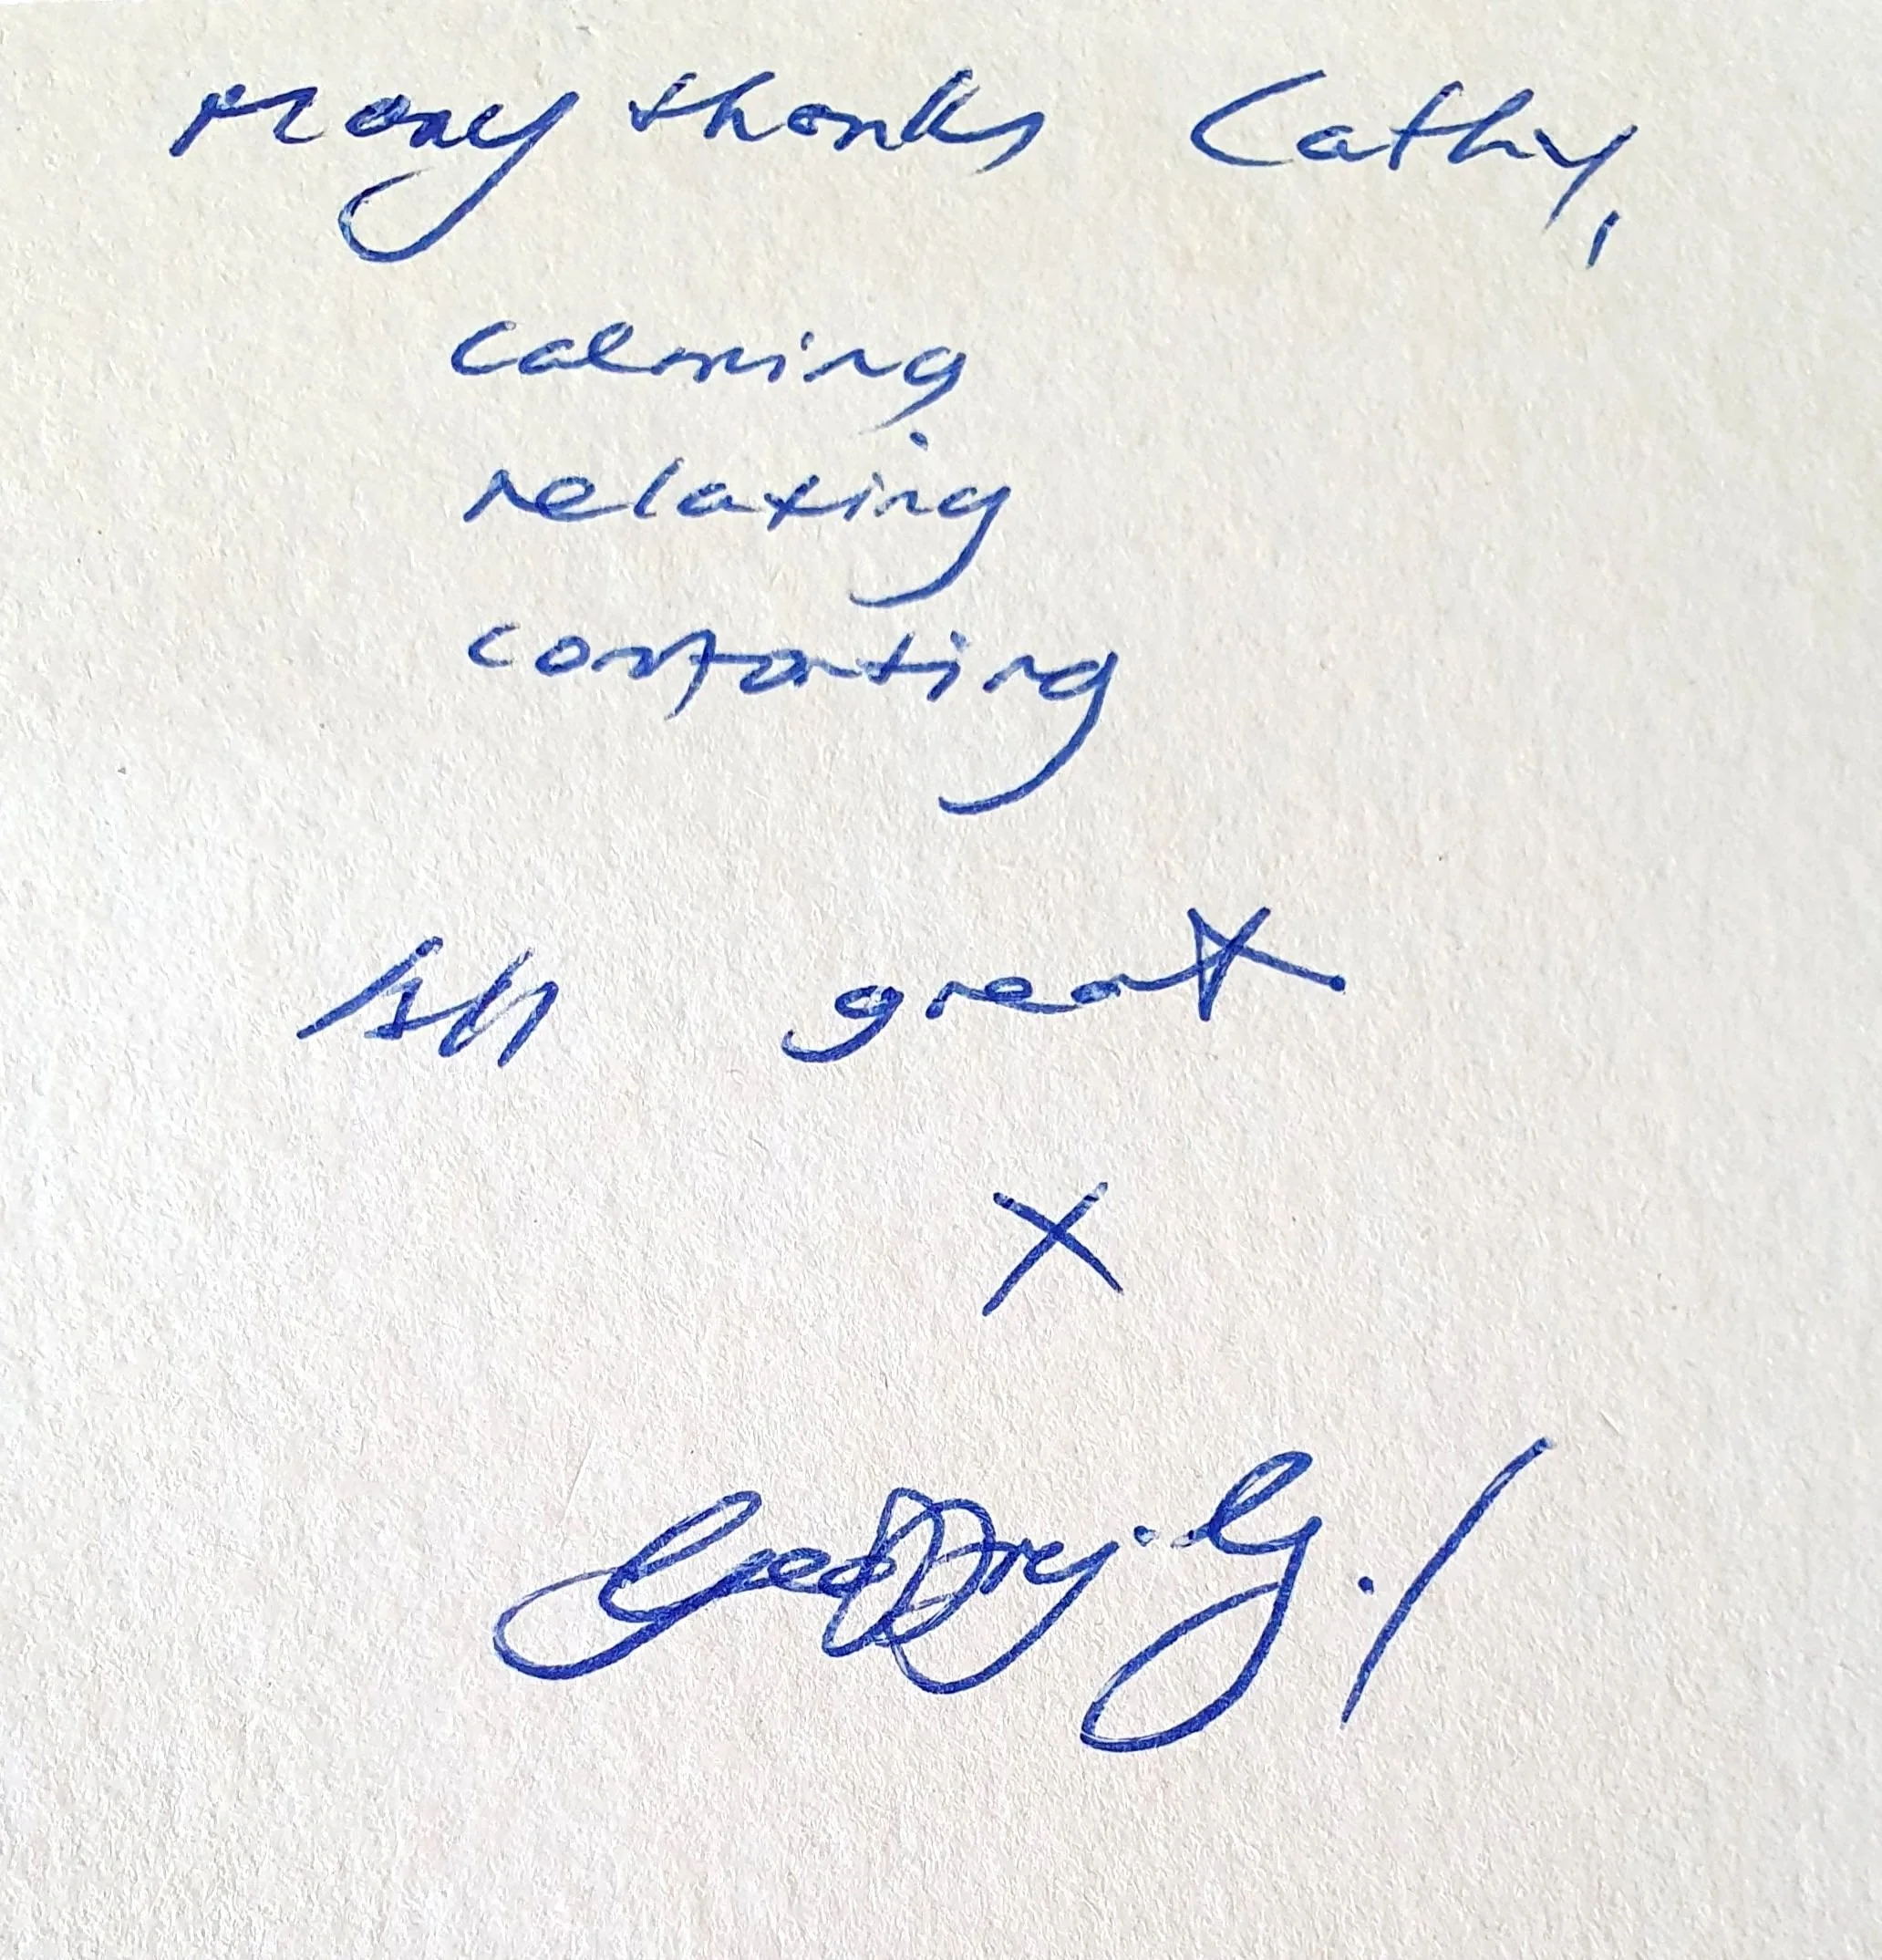 Many thanks Cathy,
calming
relaxing
comforting
All great
X
Geoffrey. G.